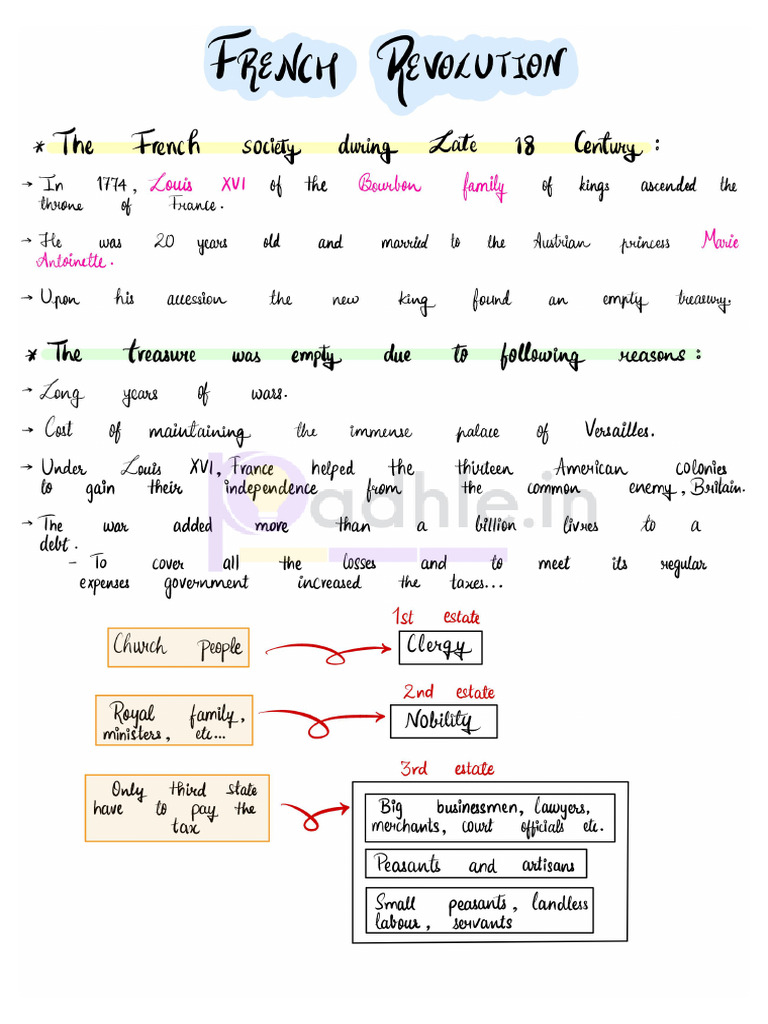 FRENCH REVOLUTION
* The French society during Late 18 Century :
→ In 1774, Louis XVI of the Bourbon family of kings ascended the
throne of France.
→ He was 20 years old and married to the Austrian princess Marie
Antoinette.
→ Upon his accession the new king found an empty treasury.
* The treasure was empty due to following reasons :
→ Long years of wars.
→ Cost of maintaining the immense palace of Versailles.
→ Under Louis XVI, France helped the thirteen American colonies
to gain their independence from the common enemy, Britain.
padhle.in
→ The war added more than a billion livres to a
debt.
- To cover all the losses and to meet its regular
expenses government increased the taxes...
1st estate
Church people
Clergy
2nd estate
Royal family,
ministers, etc...
Nobility
3rd estate
Only third state
have to pay the
tax
Big businessmen, lawyers,
merchants, court officials etc.
Peasants and artisans
Small peasants, landless
labour, servants